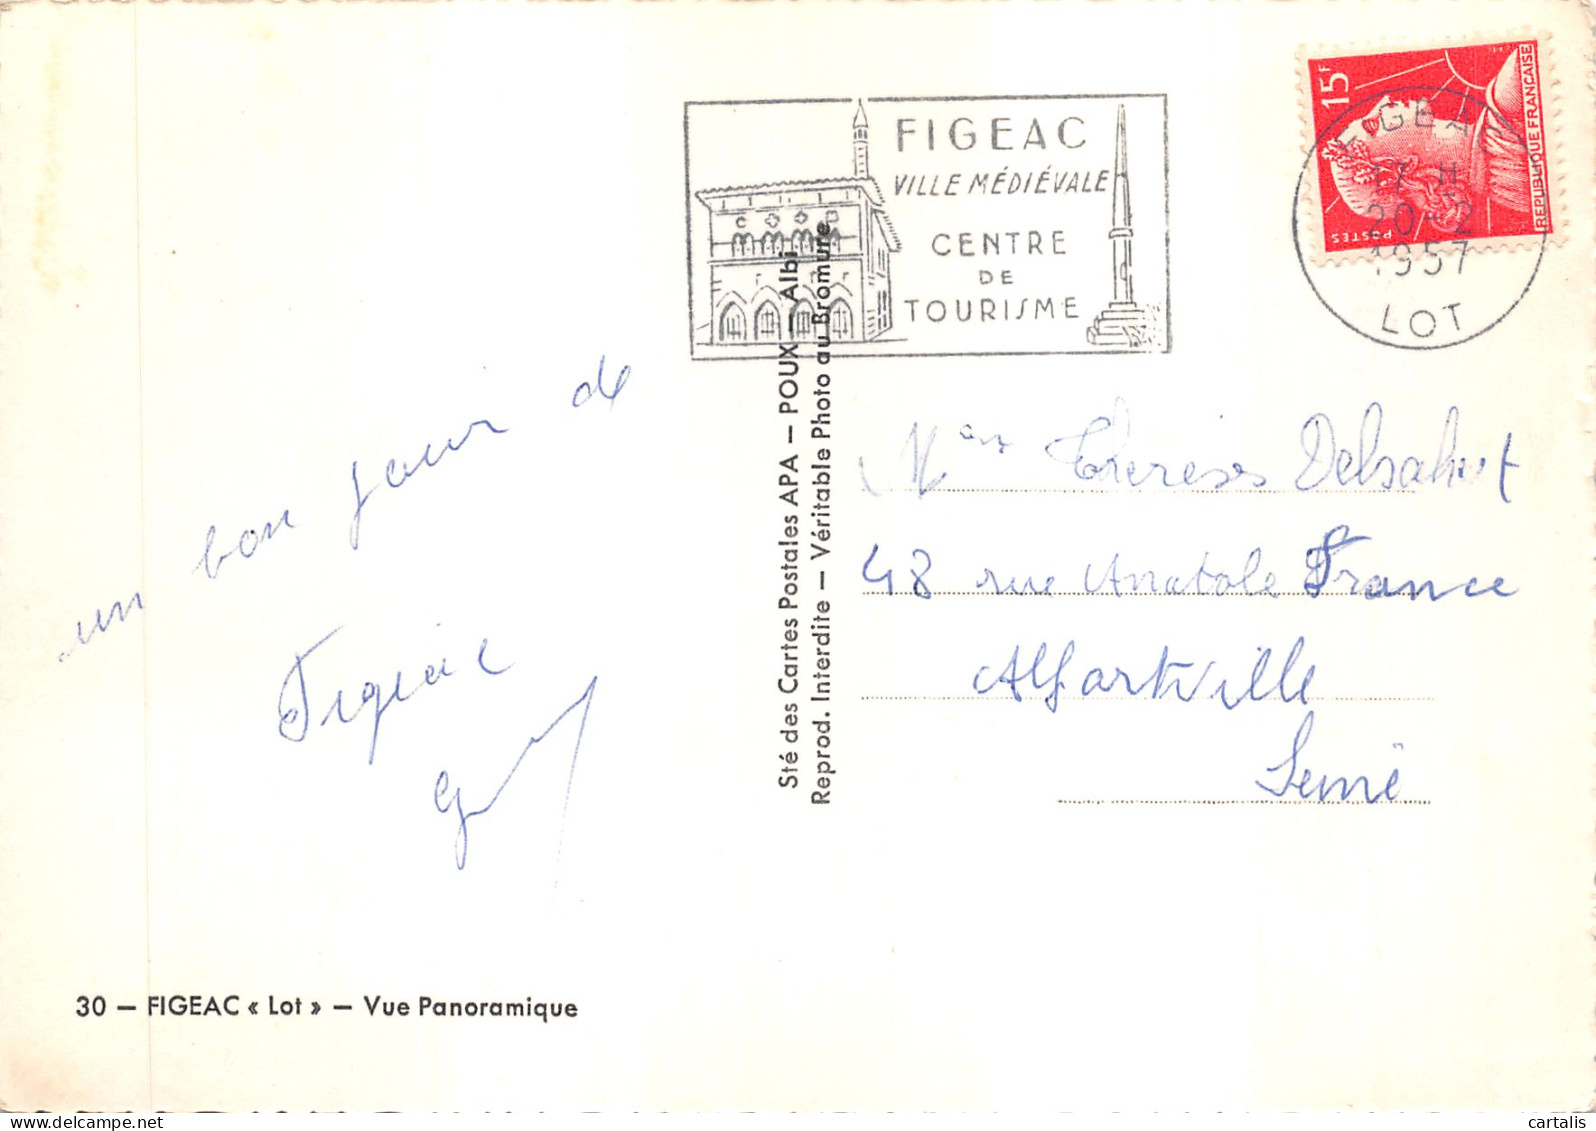 FIGEAC
VILLE MÉDIÉVALE
CENTRE
DE
TOURISME
15F
REPUBLIQUE FRANÇAISE
POSTES
FIGEAC
17 H
20-2
1957
LOT
un bon jour de
Figeac
Sté des Cartes Postales APA — POUX — Albi
Reprod. Interdite — Véritable Photo au Bromure
Thereses
48 rue Anatole France
Alfortville
Seine
30 — FIGEAC « Lot » — Vue Panoramique
cartalis